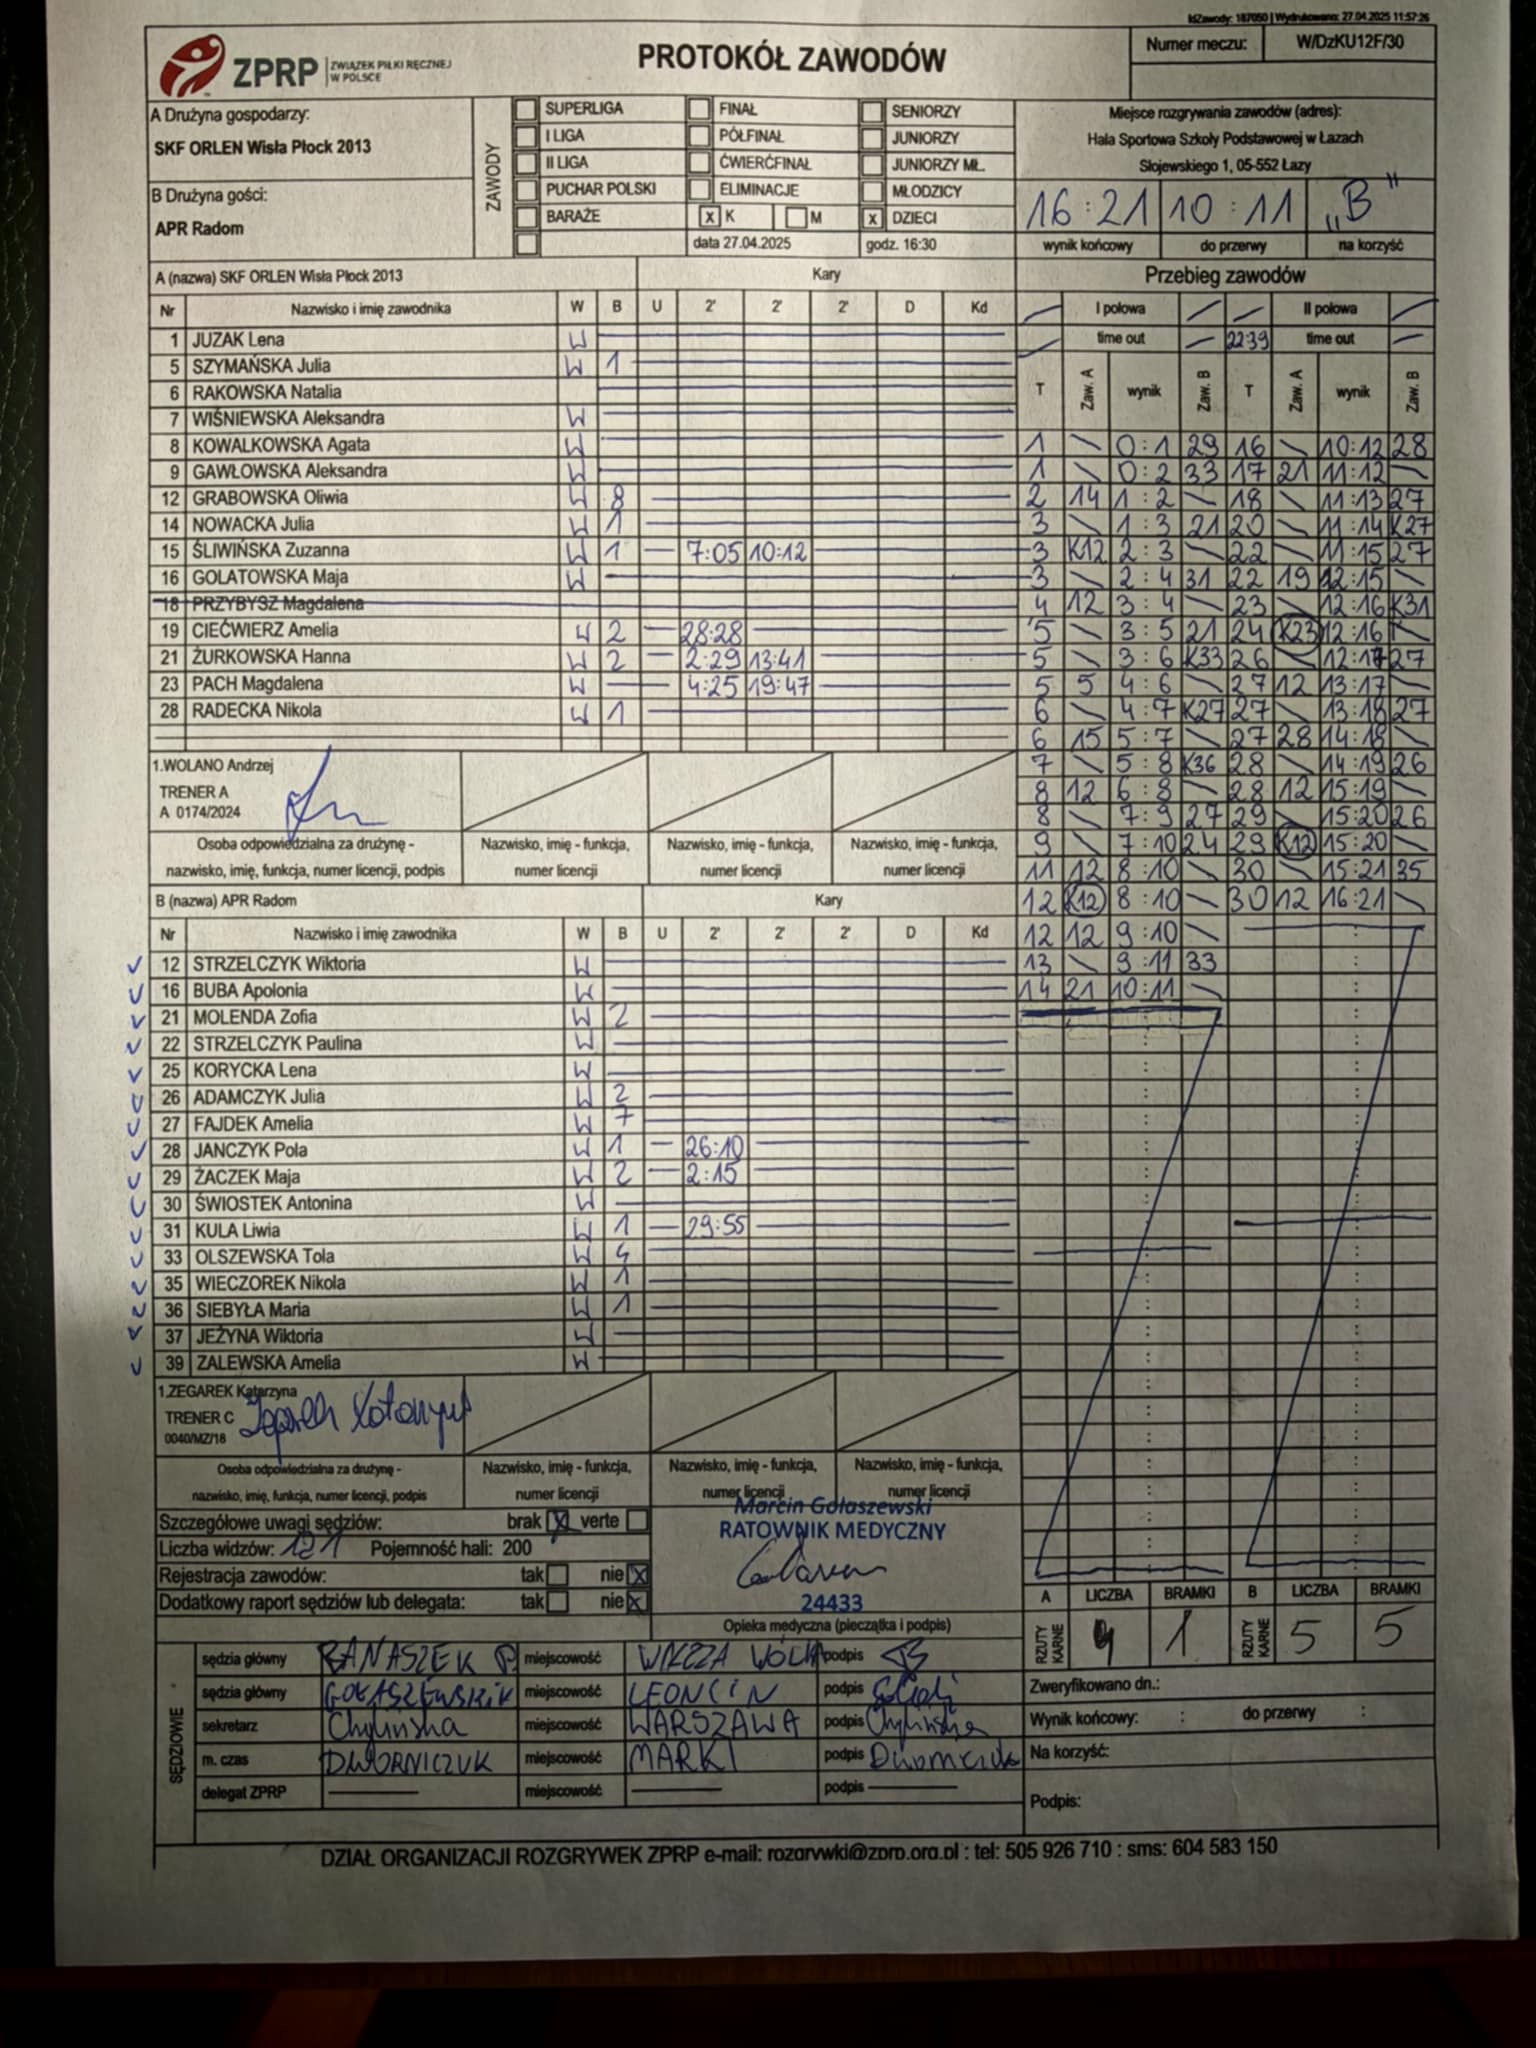 IdZawody: 187050 | Wydrukowano: 27.04.2025 11:57:26
ZPRP ZWIĄZEK PIŁKI RĘCZNEJ W POLSCE
PROTOKÓŁ ZAWODÓW
Numer meczu: W/DzKU12F/30
A Drużyna gospodarzy:
SKF ORLEN Wisła Płock 2013
B Drużyna gości:
APR Radom
ZAWODY
SUPERLIGA FINAŁ SENIORZY
I LIGA PÓŁFINAŁ JUNIORZY
II LIGA ĆWIERĆFINAŁ JUNIORZY MŁ.
PUCHAR POLSKI ELIMINACJE MŁODZICY
BARAŻE x K M x DZIECI
data 27.04.2025 godz. 16:30
Miejsce rozgrywania zawodów (adres):
Hala Sportowa Szkoły Podstawowej w Łazach
Słojewskiego 1, 05-552 Łazy
16:21 10:11 „B"
wynik końcowy do przerwy na korzyść
A (nazwa) SKF ORLEN Wisła Płock 2013 Kary
Nr Nazwisko i imię zawodnika W B U 2' 2' 2' D Kd
1 JUZAK Lena W
5 SZYMAŃSKA Julia W 1
6 RAKOWSKA Natalia
7 WIŚNIEWSKA Aleksandra W
8 KOWALKOWSKA Agata W
9 GAWŁOWSKA Aleksandra W
12 GRABOWSKA Oliwia W 8
14 NOWACKA Julia W 1
15 ŚLIWIŃSKA Zuzanna W 1 7:05 10:12
16 GOLATOWSKA Maja W
18 PRZYBYSZ Magdalena
19 CIEĆWIERZ Amelia W 2 28:28
21 ŻURKOWSKA Hanna W 2 2:29 13:41
23 PACH Magdalena W 4:25 19:47
28 RADECKA Nikola W 1
1.WOLANO Andrzej
TRENER A
A 0174/2024
Osoba odpowiedzialna za drużynę - Nazwisko, imię - funkcja, Nazwisko, imię - funkcja, Nazwisko, imię - funkcja,
nazwisko, imię, funkcja, numer licencji, podpis numer licencji numer licencji numer licencji
B (nazwa) APR Radom Kary
Nr Nazwisko i imię zawodnika W B U 2' 2' 2' D Kd
12 STRZELCZYK Wiktoria W
16 BUBA Apolonia W
21 MOLENDA Zofia W 2
22 STRZELCZYK Paulina W
25 KORYCKA Lena W
26 ADAMCZYK Julia W 2
27 FAJDEK Amelia W 7
28 JANCZYK Pola W 1 26:10
29 ŻACZEK Maja W 2 2:15
30 ŚWIOSTEK Antonina W
31 KULA Liwia W 1 29:55
33 OLSZEWSKA Tola W 4
35 WIECZOREK Nikola W 1
36 SIEBYŁA Maria W 1
37 JEŻYNA Wiktoria W
39 ZALEWSKA Amelia W
1.ZEGAREK Katarzyna
TRENER C
0040/MZ/16
Osoba odpowiedzialna za drużynę - Nazwisko, imię - funkcja, Nazwisko, imię - funkcja, Nazwisko, imię - funkcja,
nazwisko, imię, funkcja, numer licencji, podpis numer licencji numer licencji numer licencji
Szczegółowe uwagi sędziów: brak X verte
Liczba widzów: 121 Pojemność hali: 200
Rejestracja zawodów: tak nie X
Dodatkowy raport sędziów lub delegata: tak nie X
Marcin Gołaszewski
RATOWNIK MEDYCZNY
24433
Opieka medyczna (pieczątka i podpis)
Przebieg zawodów
I połowa II połowa
time out 22:39 time out
T Zaw. A wynik Zaw. B T Zaw. A wynik Zaw. B
1 0:1 29 16 10:12 28
1 0:2 33 17 21 11:12
2 14 1:2 18 11:13 27
3 1:3 21 20 11:14 K27
3 K12 2:3 22 11:15 27
3 2:4 31 22 19 12:15
4 12 3:4 23 12:16 K31
5 3:5 21 24 K23 12:16
5 3:6 K33 26 12:17 27
5 5 4:6 27 12 13:17
6 4:7 K27 27 13:18 27
6 15 5:7 27 28 14:18
7 5:8 K36 28 14:19 26
8 12 6:8 28 12 15:19
8 7:9 27 29 15:20 26
9 7:10 24 29 K12 15:20
11 12 8:10 30 15:21 35
12 K12 8:10 30 12 16:21
12 12 9:10
13 9:11 33
14 21 10:11
A LICZBA BRAMKI B LICZBA BRAMKI
RZUTY KARNE 4 1 RZUTY KARNE 5 5
SĘDZIOWIE
sędzia główny BANASZEK P. miejscowość WILCZA WÓLKA podpis
sędzia główny GOŁASZEWSKI K miejscowość LEONCIN podpis
sekretarz Chylińska miejscowość WARSZAWA podpis Chylińska
m. czas DWORNICZUK miejscowość MARKI podpis Dworniczuk
delegat ZPRP miejscowość podpis
Zweryfikowano dn.:
Wynik końcowy: : do przerwy :
Na korzyść:
Podpis:
DZIAŁ ORGANIZACJI ROZGRYWEK ZPRP e-mail: rozgrywki@zprp.org.pl : tel: 505 926 710 : sms: 604 583 150